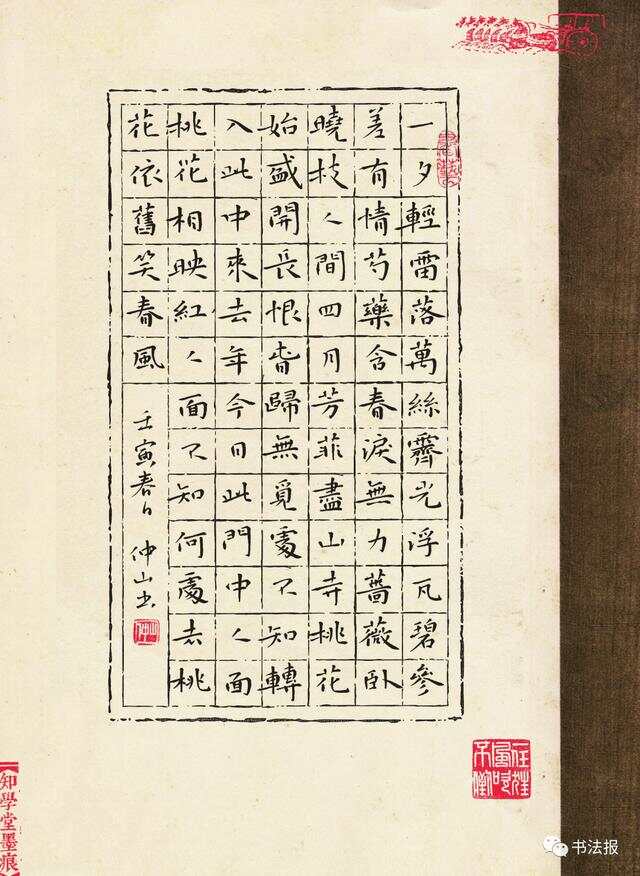 一夕輕雷落萬絲霽光浮瓦碧參
差有情芍藥含春淚無力薔薇卧
曉枝人間四月芳菲盡山寺桃花
始盛開長恨旾歸無覓處不知轉
入此中來去年今日此門中人面
桃花相映紅人面不知何處去桃
花依舊笑春風
壬寅春日仲山书
知學堂墨痕
书法报